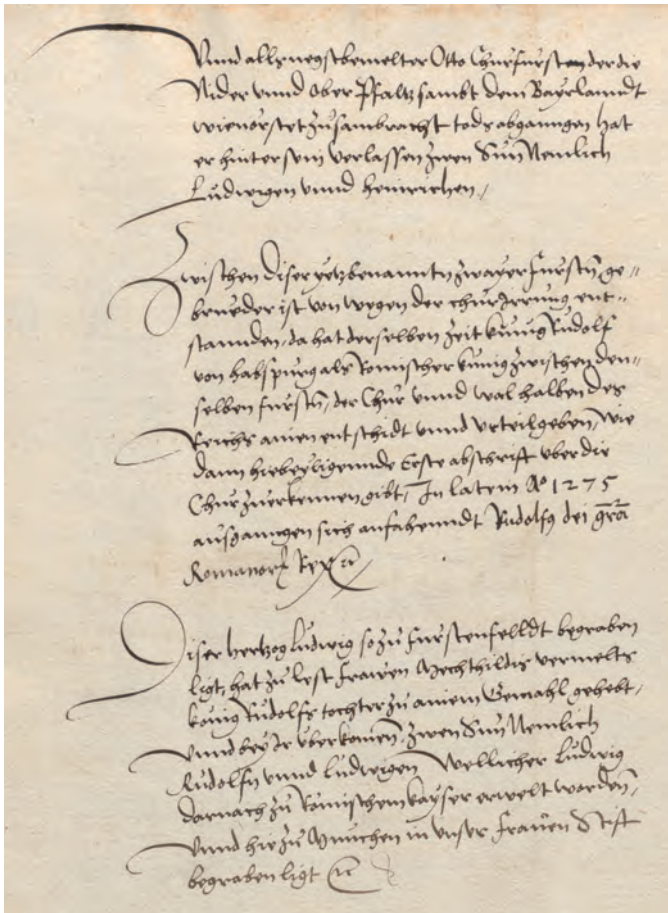 Vnnd alls negstbemelter Otto Churfürst der die
Nider vnnd Ober Pfaltz sambt dem Bayrlanndt
wie vorstet zusambracht tods abganngen hat
er hinter sein verlassen zwen Sün Nemlich
Ludwigen vnnd Heinrichen,
Zwischen diser yetzbenanntn zwayer Fürstn ge„
brueder ist von wegen der Chur Irrung ent„
stannden, da hat derselben Zeit künig Rudolf
von Habspurg als Romischer künig zwischen den„
selben fürstn, der Chur vnnd wal halben des
Reichs ainen entschidt vnnd vrteil geben, wie
dann hiebeyligennde Erste abschrifft vber die
Chur zuerkennen gibt, In latein Ao 1275
ausganngen sich anfahenndt Rudolfg dei gra
Romanorz Rex rc
Diser Hertzog Ludwig so zu Fürstenfelldt begraben
ligt, hat zu lest Frawen Mechthildis vermelts
konig Rudolfs tochter zu ainem Gemahl gehebt,
Vnnd bey Ir vberkomen, zwen Sün Nemlich
Rudolfn vnnd Ludwigen Wellicher Ludwig
darnach zu Römischem kayser erwelt worden,
Vnnd hie zu München in vnser Frawen Stift
begraben ligt rc